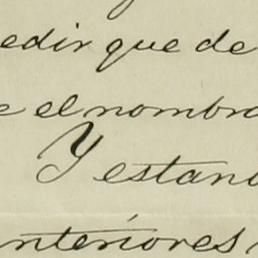 edir que de
e el nombra
Y estand
nteriores